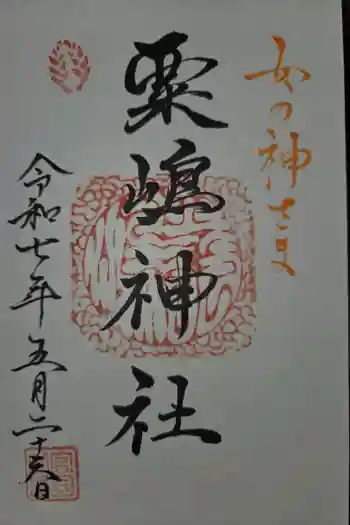 女の神さま
粟嶋神社
令和七年五月二十六日